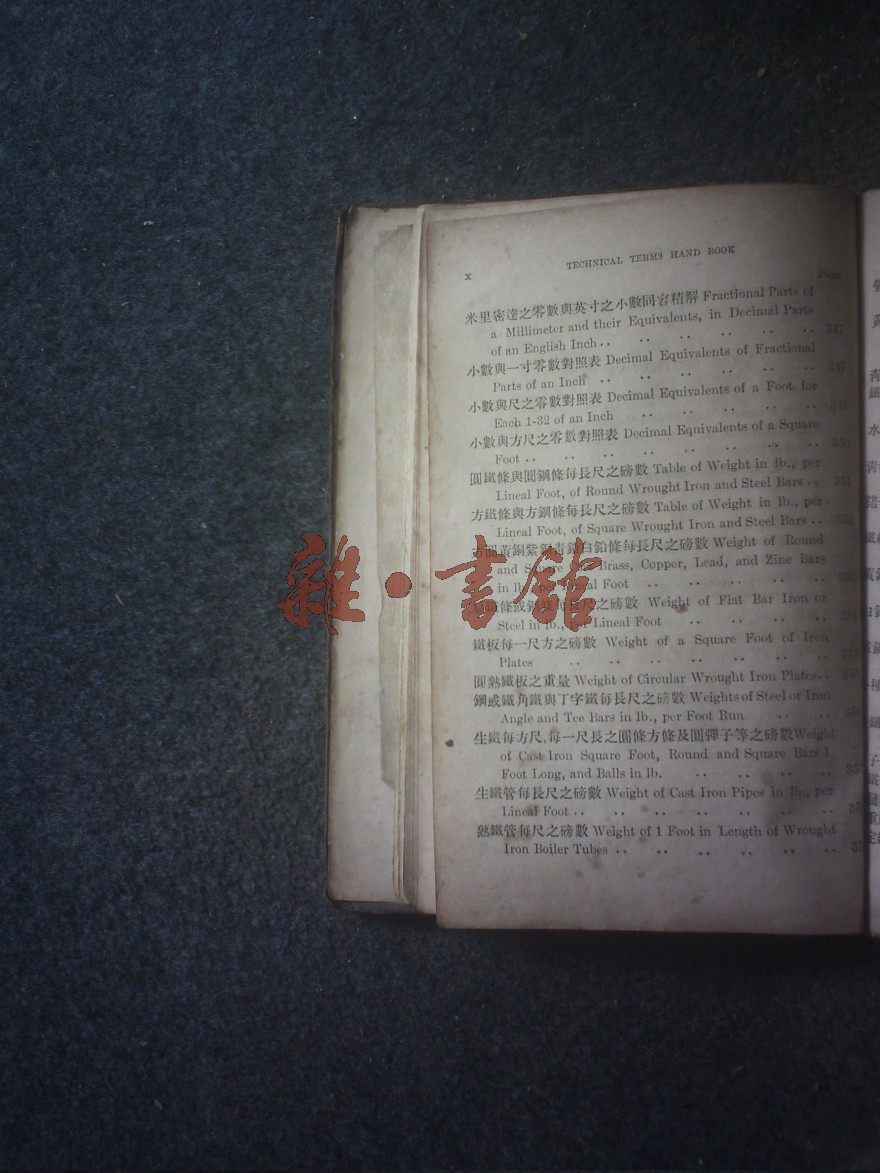 x TECHNICAL TERMS HAND BOOK
Page
米里密達之零數與英寸之小數同容積解 Fractional Parts of
a Millimeter and their Equivalents, in Decimal Parts
of an English Inch .. .. .. .. .. .. .. 347
小數與一寸零數對照表 Decimal Equivalents of Fractional
Parts of an Inch .. .. .. .. .. .. .. 347
小數與尺之零數對照表 Decimal Equivalents of a Foot. for
Each 1-32 of an Inch .. .. .. .. .. 348
小數與方尺之零數對照表 Decimal Equivalents of a Square
Foot .. .. .. .. .. .. .. .. 350
圓鐵條與圓鋼條每長尺之磅數 Table of Weight in lb., per
Lineal Foot, of Round Wrought Iron and Steel Bars .. 351
方鐵條與方鋼條每長尺之磅數 Table of Weight in lb., per
Lineal Foot, of Square Wrought Iron and Steel Bars .. 352
方圓黃銅紫銅青鉛白鉛條每長尺之磅數 Weight of Round
and Square Brass, Copper, Lead, and Zinc Bars
in lb. per Lineal Foot .. .. .. .. ..
條或鋼條每長尺之磅數 Weight of Flat Bar Iron or
Steel in lb., per Lineal Foot .. .. .. ..
鐵板每一尺方之磅數 Weight of a Square Foot of Iron
Plates .. .. .. .. .. .. ..
圓熟鐵板之重量 Weight of Circular Wrought Iron Plates ..
鋼或鐵角鐵與丁字鐵每長尺之磅數 Weights of Steel or Iron
Angle and Tee Bars in lb., per Foot Run .. ..
生鐵每方尺,每一尺長之圓條方條及圓彈子等之磅數 Weight
of Cast Iron Square Foot, Round and Square Bars 1
Foot Long, and Balls in lb. .. .. .. .. 357
生鐵管每長尺之磅數 Weight of Cast Iron Pipes in lb., per
Lineal Foot .. .. .. .. .. .. ..
熟鐵管每尺之磅數 Weight of 1 Foot in Length of Wrought
Iron Boiler Tubes .. .. .. .. .. ..
雜·書館